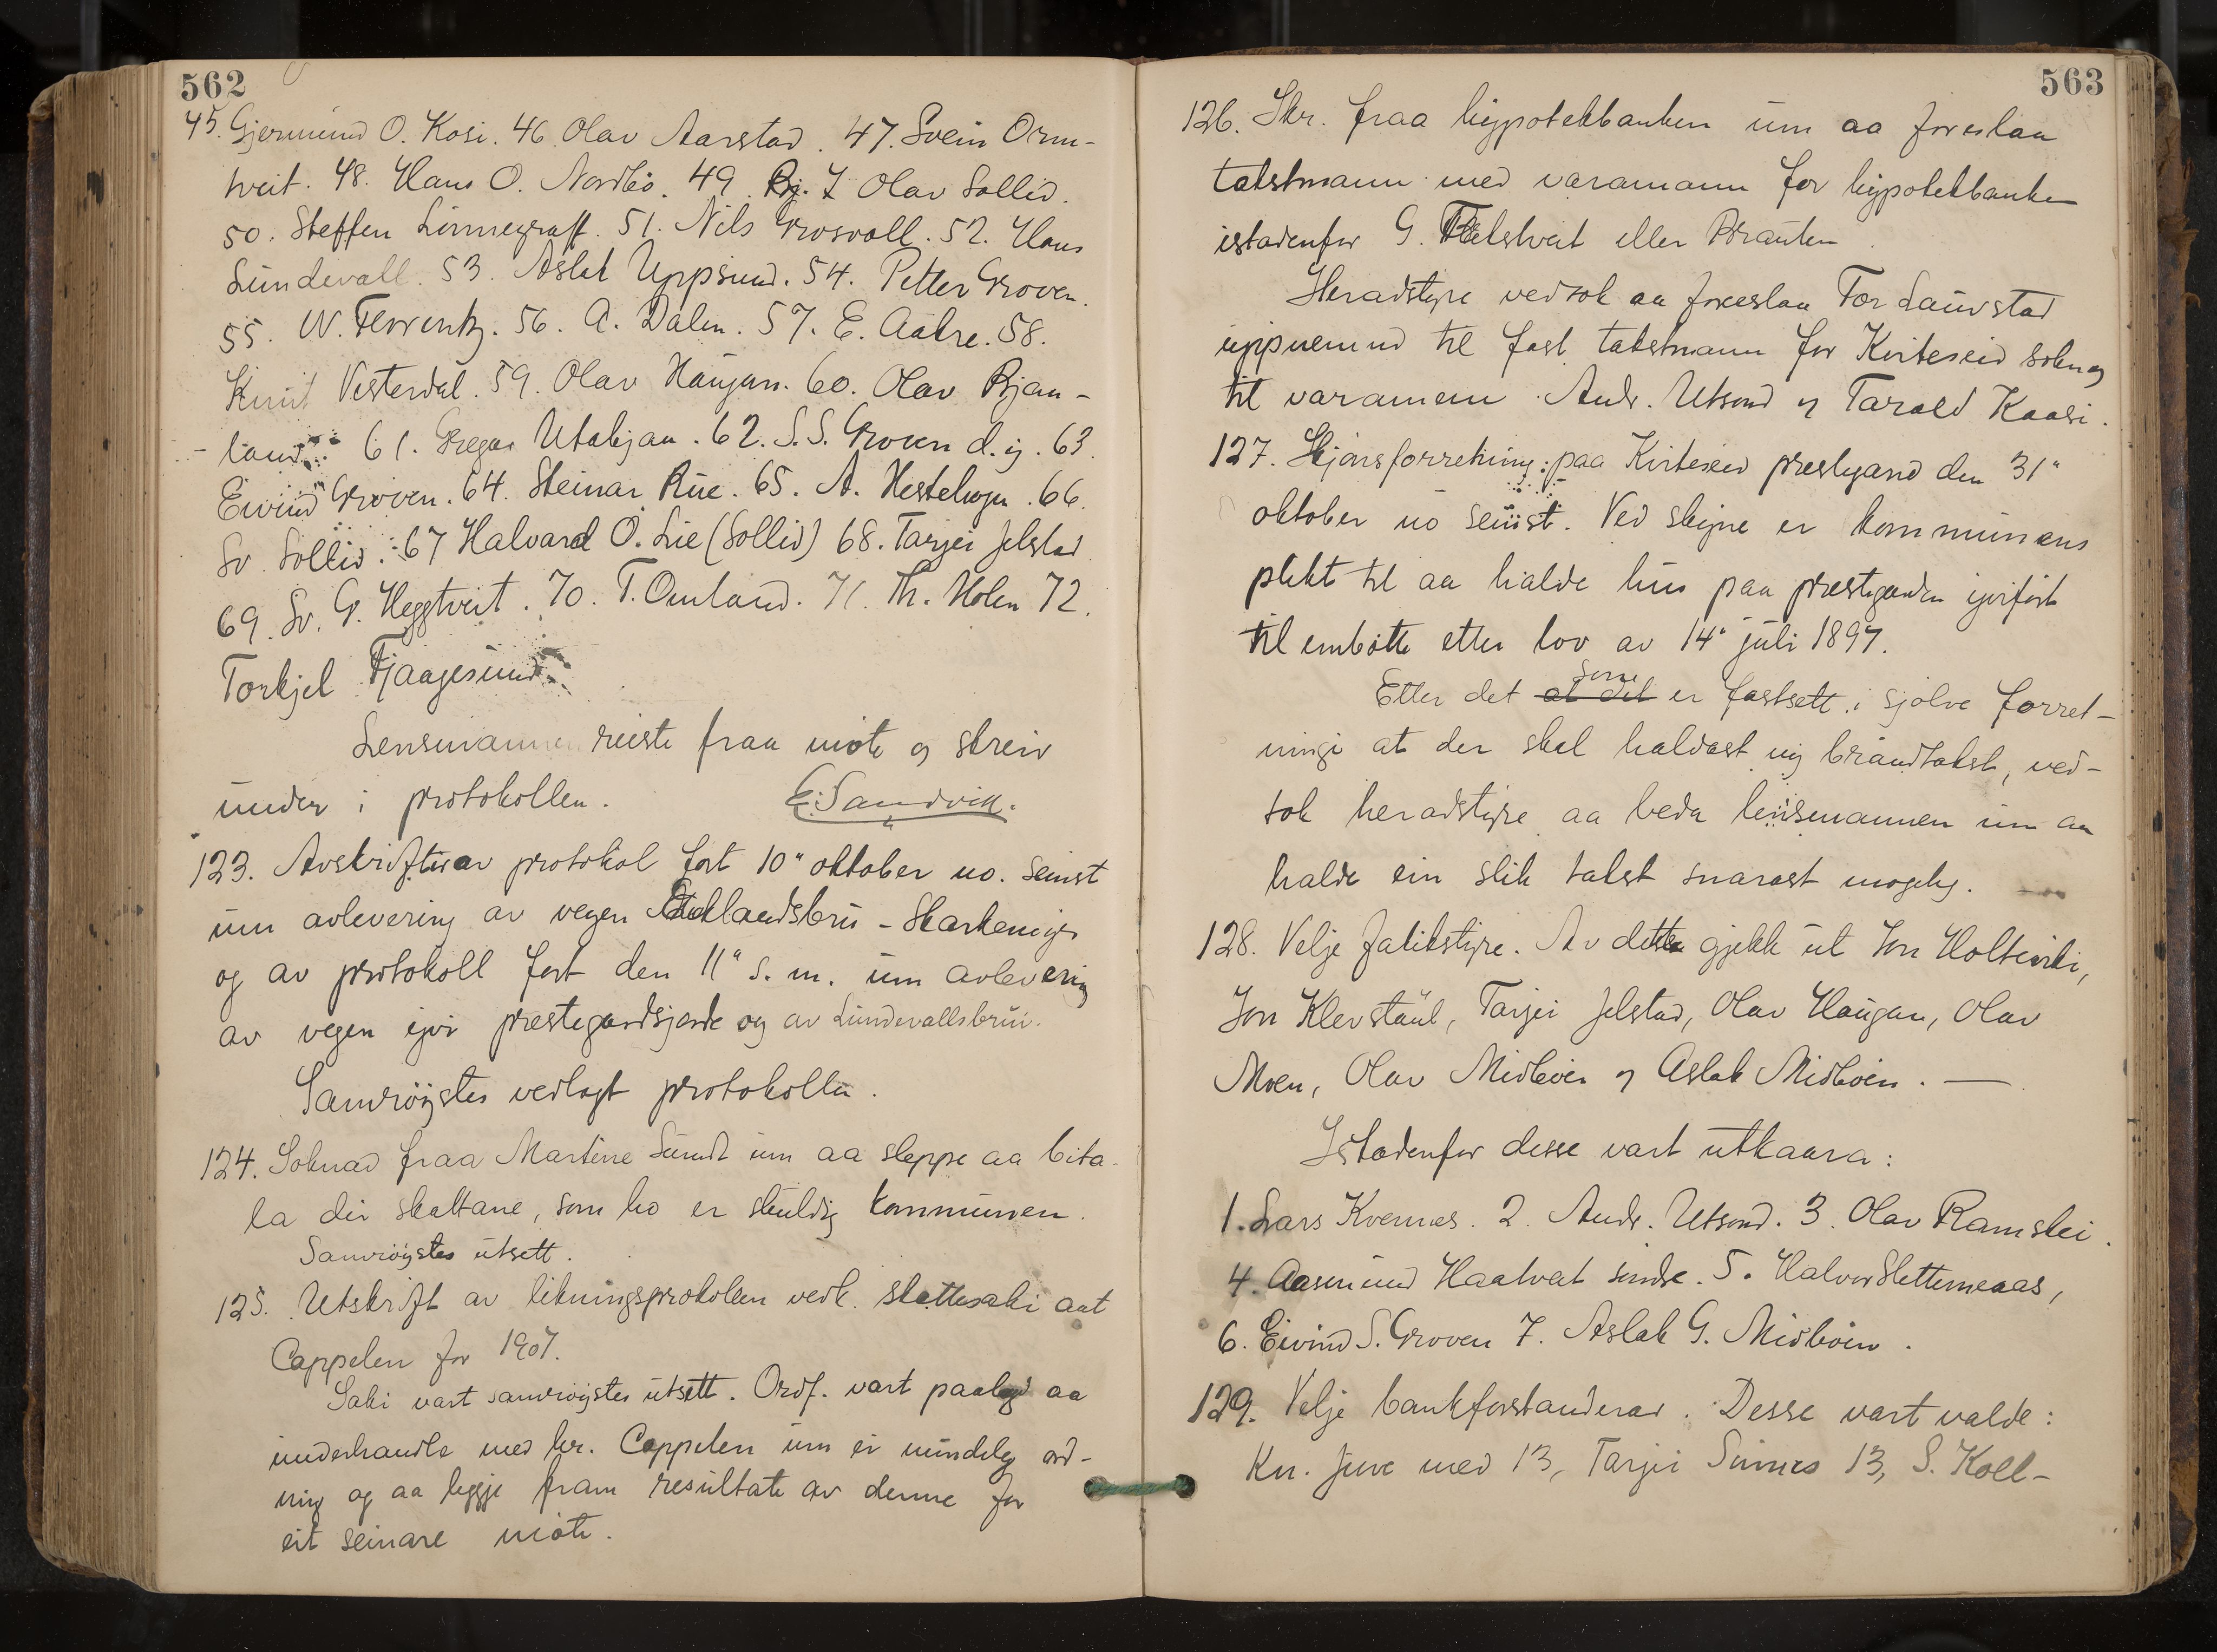 562
45. Gjermund O. Kosi. 46. Olav Aarstad. 47. Svein Orm-
tveit. 48. Hans O. Nordbø. 49. Olav Sollid.
50. Steffen Linnegraff. 51. Nils Grosvoll. 52. Hans
Lundevall. 53. Aslak Uppsund. 54. Petter Groven.
55. W. Florentz. 56. A. Dalen. 57. E. Aakre. 58.
Knut Vesterdal. 59. Olav Haugan. 60. Olav Bjaa-
land. 61. Gregar Utabjaa. 62. S. S. Groven d.y. 63.
Eivind Groven. 64. Steinar Rue. 65. A. Hestehagen. 66.
Sv. Sollid. 67 Halvard O. Lie (Sollid) 68. Tarjei Jelstad
69. Sv. G. Heggtveit. 70. T. Omland. 71. Th. Holen 72.
Torkjel Fjaagesund.
Lensmannen reiste fraa møte og skreiv
under i protokollen. E. Sandvik.
123. Avskrifter av protokol ført 10" oktober no. seinst
um avlevering av vegen - Skarkemyr
og av protokoll ført den 11" s. m. um avlevering
av vegen yvi prestegardsjorde og av Lundevallsbrui.
Samrøystes vedlagt protokollen.
124. Søknad fraa Martine Sundt um aa sleppe aa bita-
la dei skattane, som ho er skuldig kommunen.
Samrøystes utsett.
125. Utskrift av likningsprotokollen vedk. skattesaki aat
Cappelen for 1907.
Saki vart samrøystes utsett. Ordf. vart paalagd aa
underhandle med hr. Cappelen um ei mindeleg ord-
ning og aa leggje fram resultate av denne for
eit seinare møte.
563
126. Skr. fraa hypotekbanken um aa foreslaa
takstmann med varamann for hypotekbanken
istadenfor G. eller Brauten.
Heradstyre vedtok aa foreslaa Tor Lauvstad
uppnemnd til fast takstmann for Kviteseid sokn og
til varamenn Andr. Utsond og Tarald Kaasi.
127. Skjønsforretning: paa Kviteseid prestgard den 31"
oktober no seinst. Ved skyne er kommunens
plikt til aa halde hus paa prestgarden yviført
til embøtte etter lov av 14" juli 1897.
Etter det at det som er fastsett i sjølve forret-
ningi at der skal haldast ny brandtakst, ved-
tok heradstyre aa beda lensmannen um aa
halde ein slik takst snarast mogeleg.
128. Velje fatikstyre. Av dette gjekk ut Jon Holtevirki,
Jon Klevstaul, Tarjei Jelstad, Olav Haugan, Olav
Moen, Olav Midbøen og Aslak Midbøen. —
Istadenfor desse vart utkaara:
1. Lars Kvennes. 2. Andr. Utsond. 3. Olav Ramslei.
4. Aasmund Haatveit søndre. 5. Halvor Slettemeaas,
6. Eivind S. Groven 7. Aslak G. Midbøen.
129. Velje bankforstanderar. Desse vart valde:
Kn. Juve med 13, Tarjei Sunnes 13, S. Koll-